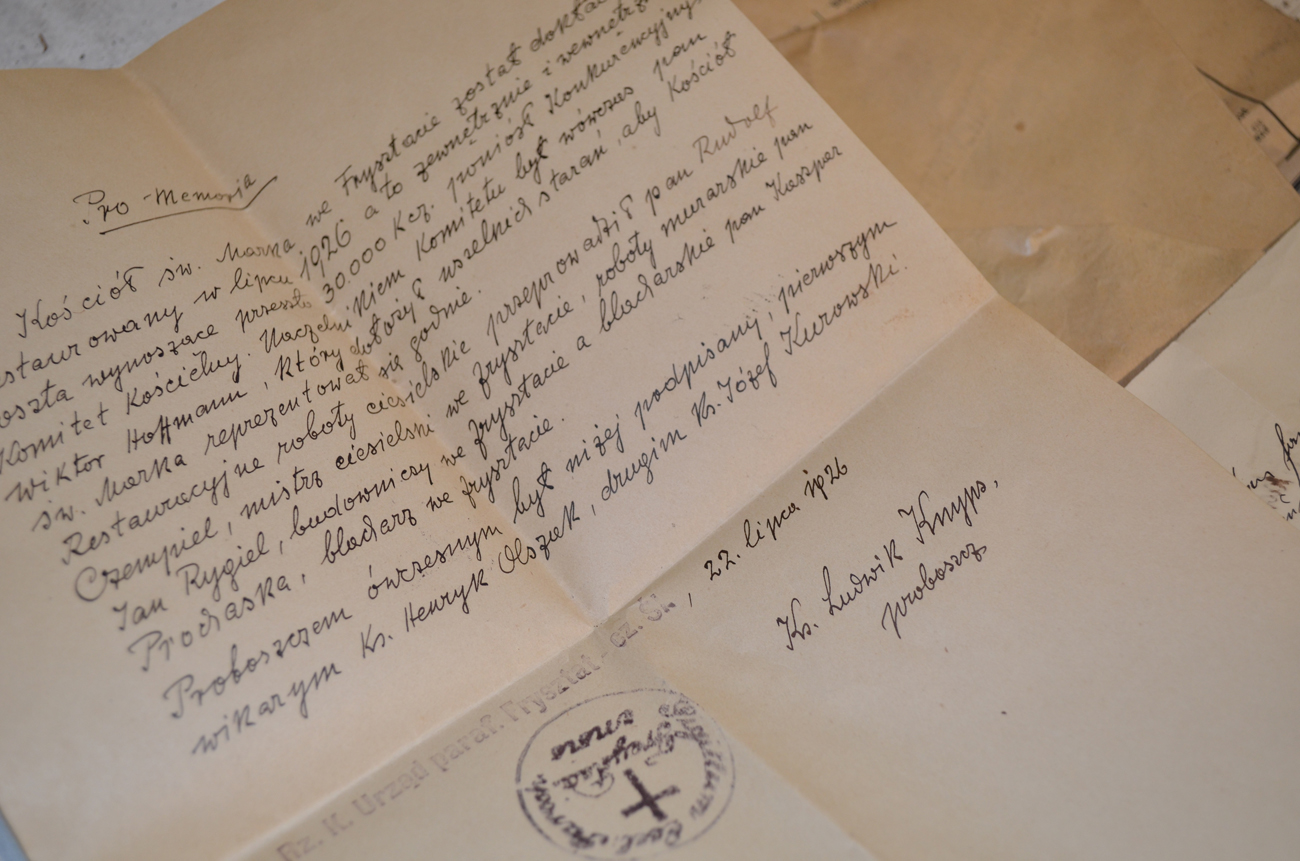 Pro Memoria
Kościół św. Marka we Frysztacie został
restaurowany w lipcu 1926 a to zewnętrznie i wewnętrznie
wynoszące przeszło 30.000 Kcz. poniósł Konkurencyjny
Komitet Kościelny. Naczelnikiem Komitetu był wówczas pan
Wiktor Hoffmann, który dołożył wszelkich starań, aby Kościół
św. Marka reprezentował się godnie.
Restauracyjne roboty ciesielskie przeprowadził pan Rudolf
Czempiel, mistrz ciesielski we Frysztacie, roboty murarskie pan
Jan Rygiel, budowniczy we Frysztacie a blacharskie pan Kaszper
Prochaska, blacharz we Frysztacie.
Proboszczem ówczesnym był niżej podpisany, pierwszym
wikarym Ks. Henryk Olszak, drugim Ks. Józef Kurowski.
Rz. K. Urząd paraf. Frysztat - cz. Śl. , 22. lipca 1926
Ks. Ludwik Knyps,
proboszcz